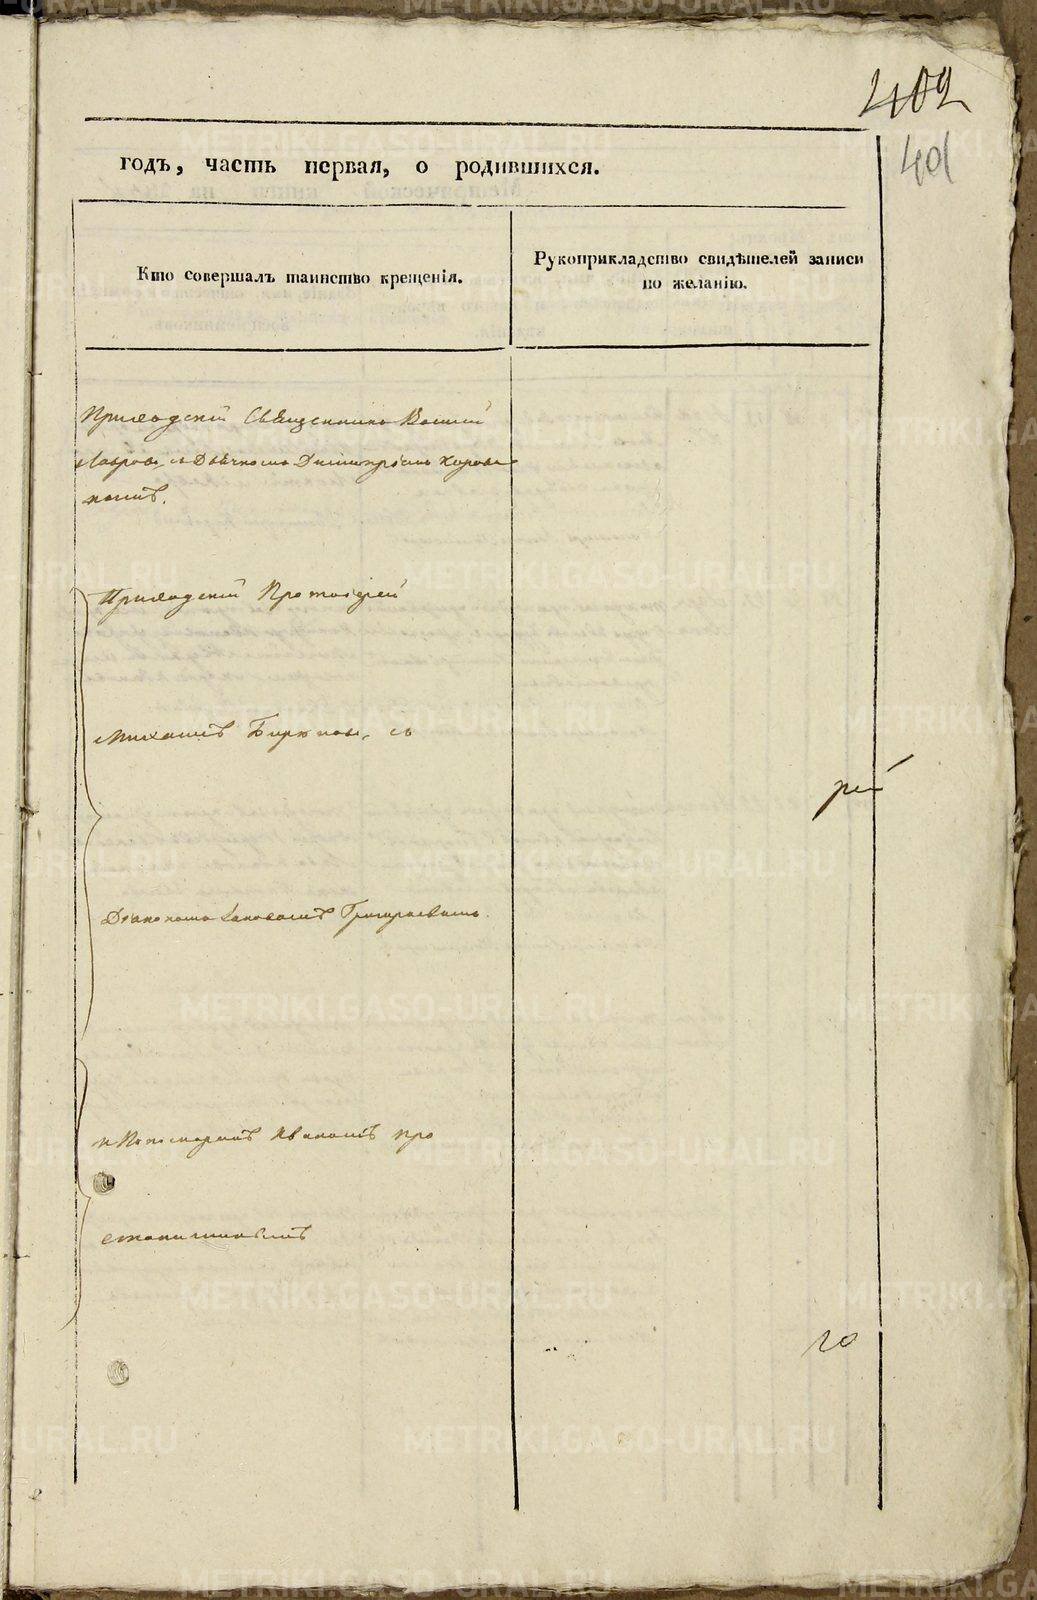 402
401
годъ, часть первая, о родившихся.
Кто совершалъ таинство крещенія.
Рукоприкладство свидѣтелей записи
по желанію.
Приходскій Священникъ Василій
Лавровъ, съ Дьячкомъ Димитріемъ
Приходскій Протоіерей
Михаилъ Бирюковъ, съ
Діакономъ Григорьевымъ
и Пономаремъ Иваномъ Про
го
METRIKI.GASO-URAL.RU